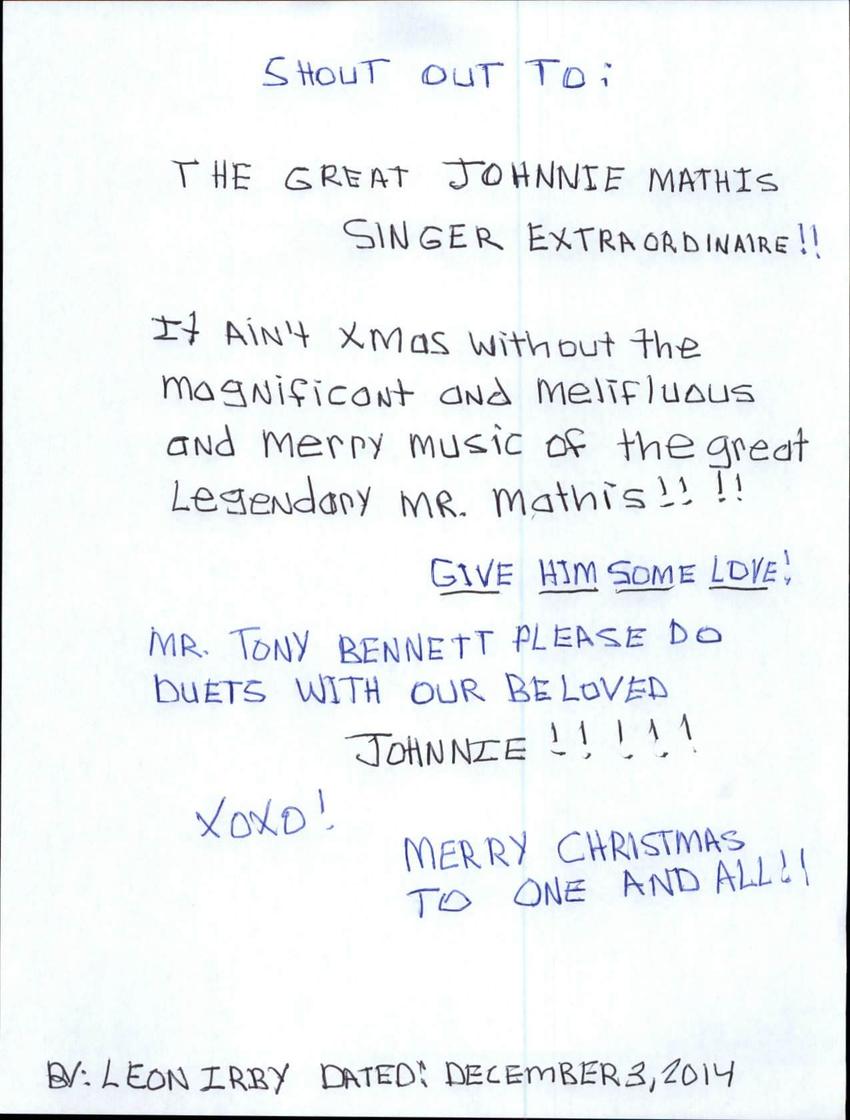 SHOUT OUT TO:
THE GREAT JOHNNIE MATHIS
SINGER EXTRAORDINAIRE!!
It AiN't Xmas without the
magnificant and melifluous
and merry music of the great
Legendary MR. Mathis!! !!
GIVE HIM SOME LOVE!
MR. TONY BENNETT PLEASE DO
DUETS WITH OUR BELOVED
JOHNNIE !!!!!
XOXO!
MERRY CHRISTMAS
TO ONE AND ALL!!
BY: LEON IRBY DATED: DECEMBER 3, 2014